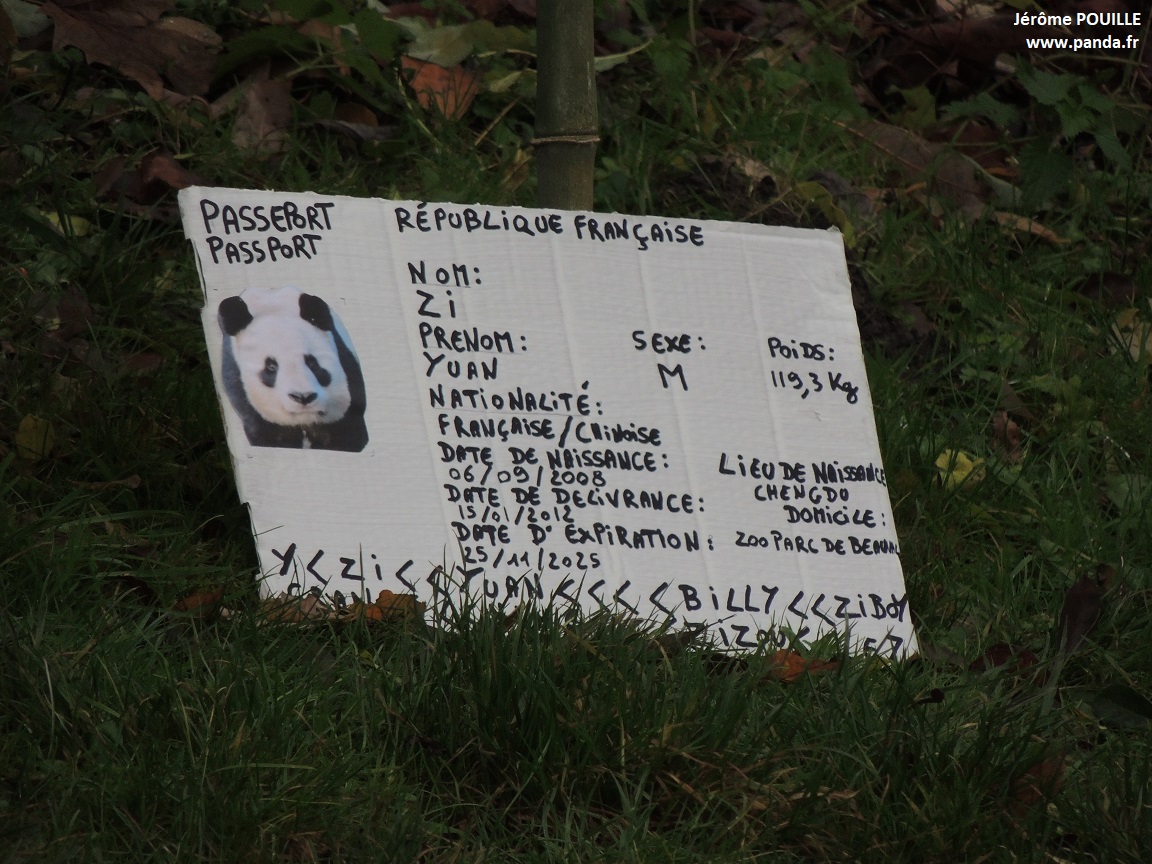 Jérôme POUILLE
www.panda.fr
PASSEPORT
PASSPORT
RÉPUBLIQUE FRANÇAISE
NOM:
Zi
PRENOM:
YUAN
SEXE:
M
POIDS:
119,3 Kg
NATIONALITÉ:
FRANÇAISE/CHINOISE
DATE DE NAISSANCE:
06/09/2008
LIEU DE NAISSANCE
CHENGDU
DATE DE DELIVRANCE:
15/01/2012
DOMICILE:
ZOO PARC DE BEAUVAL
DATE D'EXPIRATION:
25/11/2025
Y<Zi<<YUAN<<<<BiLLY<<ZiBOY
ZiZOU<